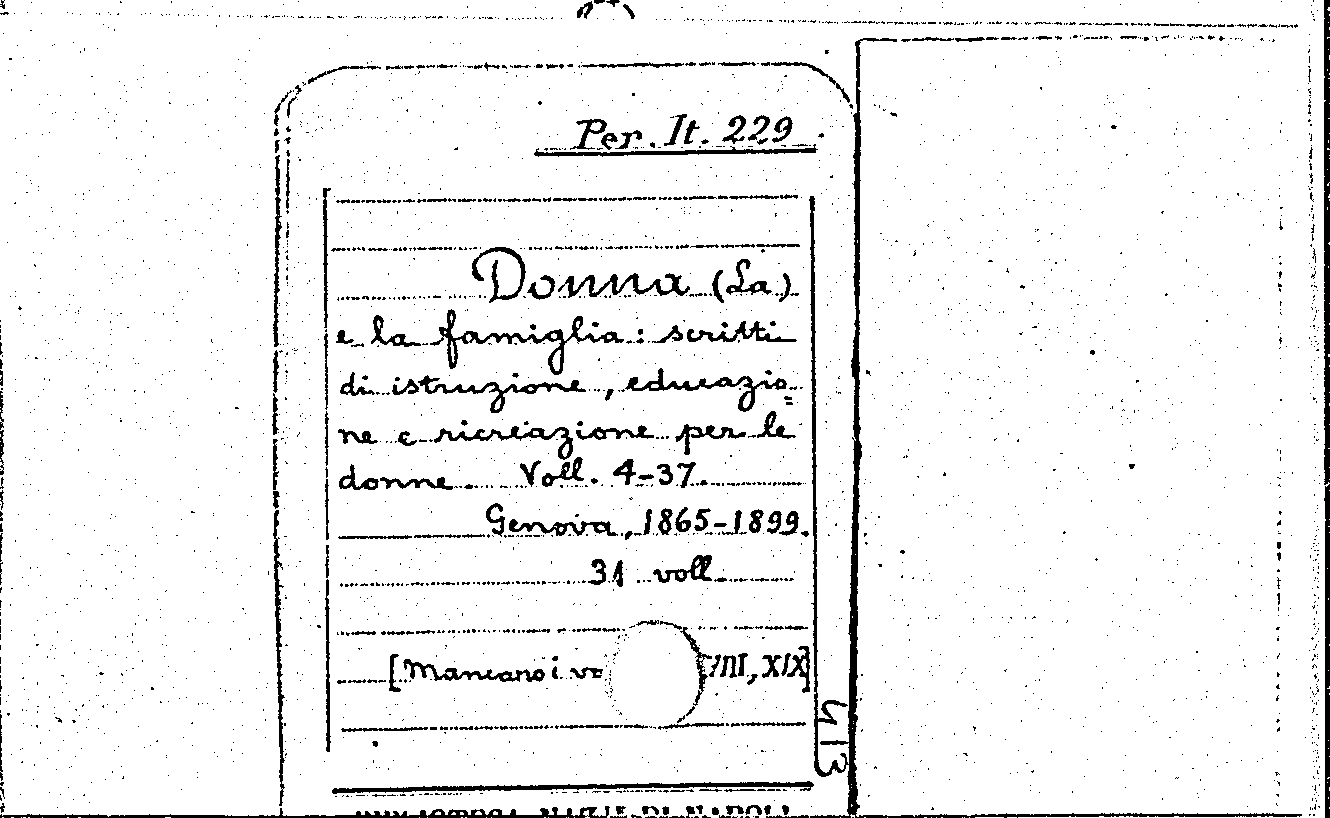 Per. It. 229
Donna (La)
e la famiglia: scritti
di istruzione, educazio=
ne e ricreazione per le
donne. Voll. 4-37.
Genova, 1865-1899.
31 voll.
[Mancano i XIX]
413
DI NAPOLI